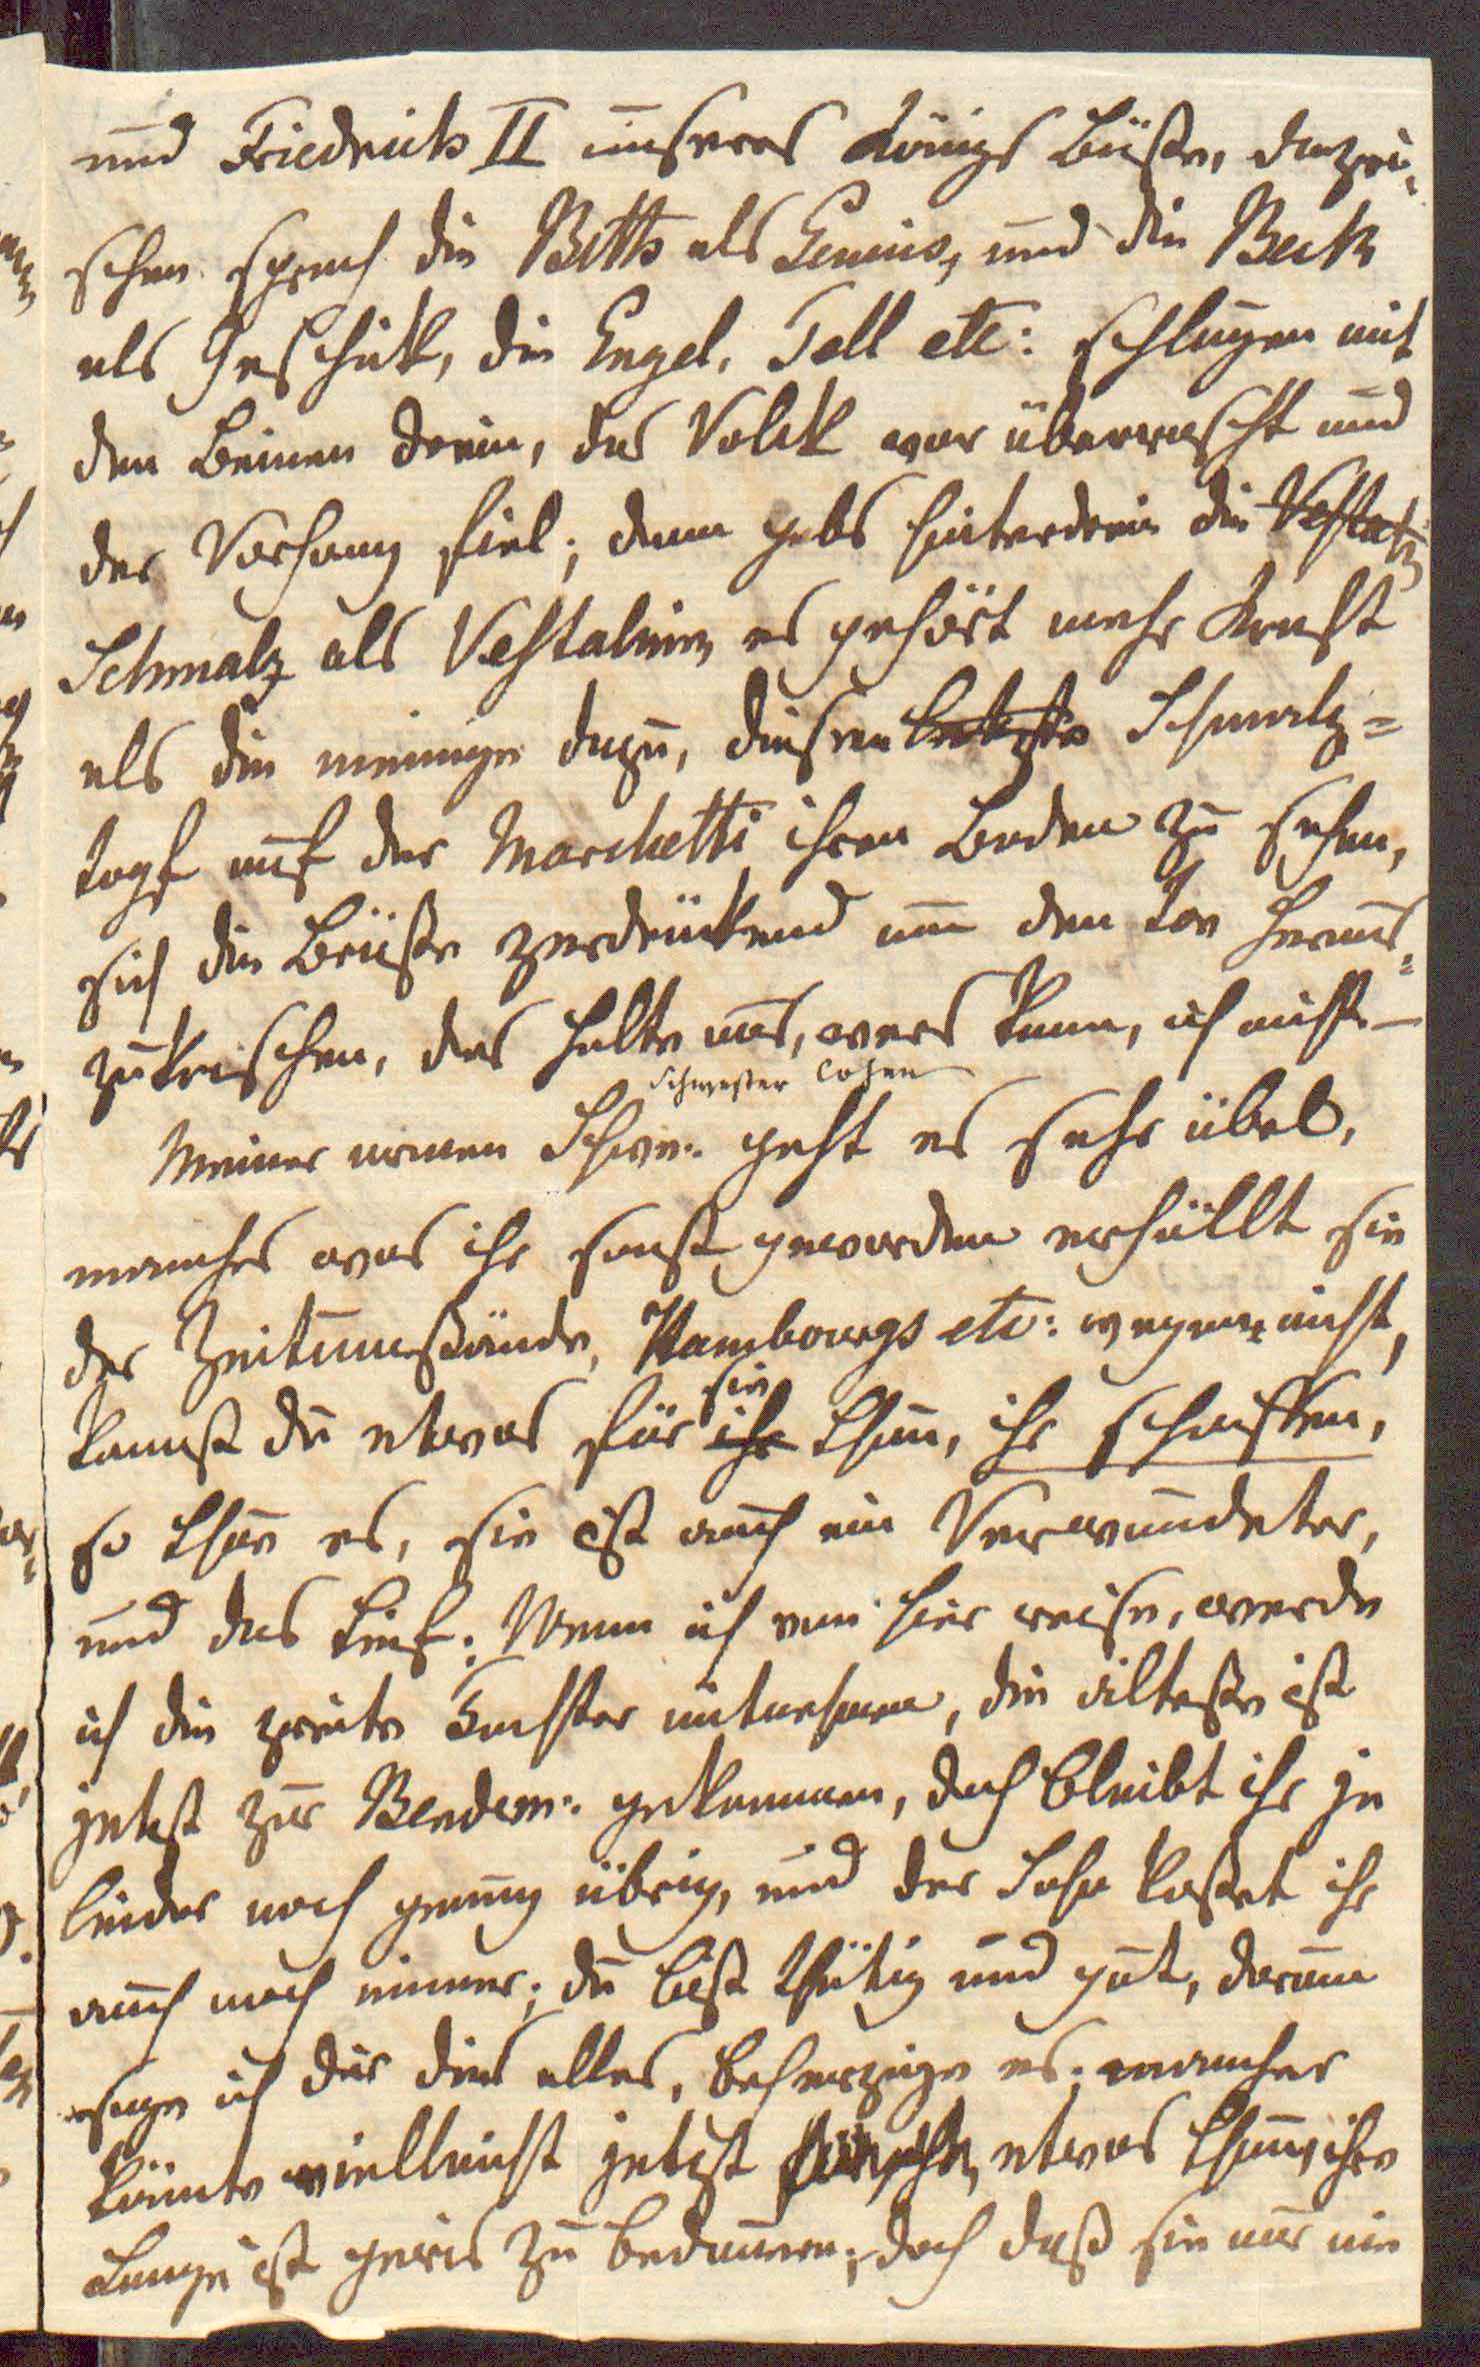 und Friedrichs II unseres Königs Büste, dazwi-
schen sprach die Beth als Genius, und die Beck
als Geschick, die Engel, Tell etc: schlugen mit
den Beinen drein, das Volck war überrascht und
der Vorhang fiel; dann gabs hinterdrein die Vestal
Schmalz als Vestalinn, es gehört mehr Kraft
als die meinige dazu, diesen Schmalz=
topf auf der Marchetti ihren Boden zu sehen,
sich die Brüste zerdrückend um den Ton heraus=
zukreischen, das halte aus, wers kann, ich nicht. —
Schwester Cohen
Meiner armen Schwe: geht es sehr übel,
manches was ihr sonst geworden erhällt sie
der Zeitumstände, Hambourgs etc: wegen, nicht,
sie
kannst du etwas für ihr thun, ihr schaffen,
so thue es, sie ist auch ein Verwundeter,
und das tief; Wenn ich von hier reise, werde
ich die zweite Tochter mitnehmen, die älteste ist
jetzt zur Bendem: gekommen, doch bleibt ihr ja
leider noch genung übrig, und der Sohn kostet ihr
auch noch immer; du bist thätig und gut, darum
sage ich dir dies alles, beherzige es; mancher
könnte vielleicht jetzt für sie etwas thun, ihre
Lange ist gewis zu bedauern; doch daß sie nur nie